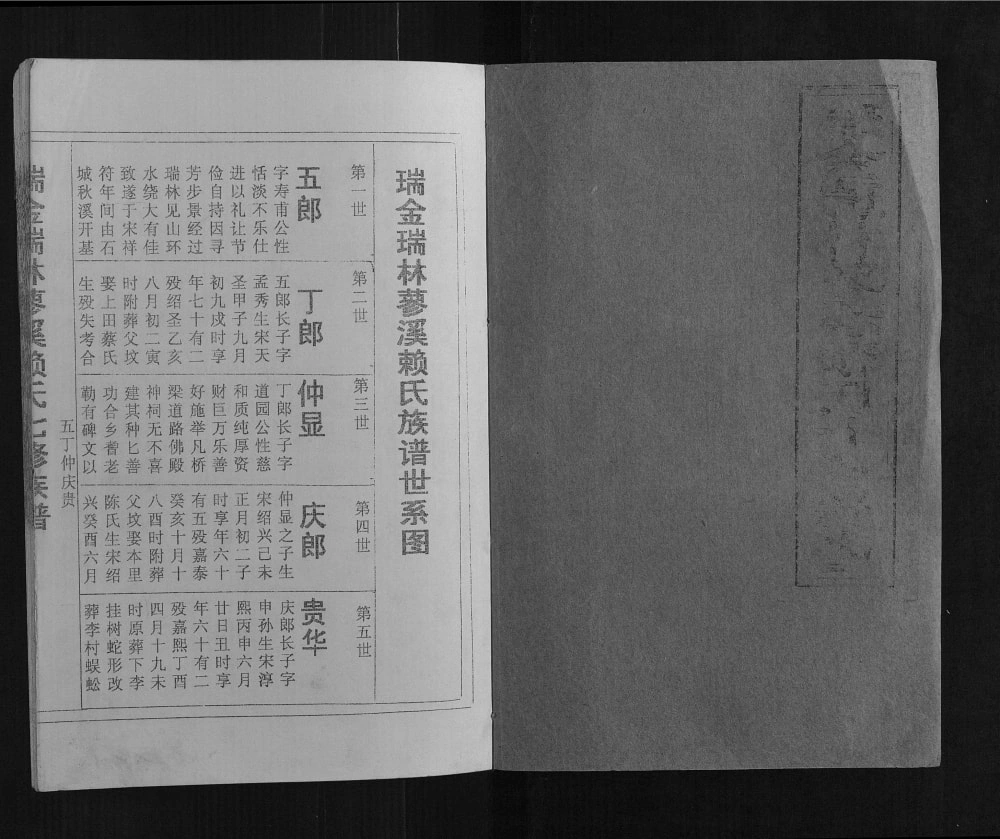 瑞金瑞林蓼溪赖氏族谱世系图
第一世
五郎
字寿甫公性
恬淡不乐仕
进以礼让节
俭自持因寻
芳步景经过
瑞林见山环
水绕大有佳
致遂于宋祥
符年间由石
城秋溪开基
第二世
丁郎
五郎长子字
孟秀生宋天
圣甲子九月
初九戌时享
年七十有二
殁绍圣乙亥
八月初二寅
时附葬父坟
娶上田蔡氏
生殁失考合
第三世
仲显
丁郎长子字
道园公性慈
和质纯厚资
财巨万乐善
好施举凡桥
梁道路佛殿
神祠无不喜
建其种匕善
功合乡耆老
勒有碑文以
第四世
庆郎
仲显之子生
宋绍兴己未
正月初二子
时享年六十
有五殁嘉泰
癸亥十月十
八酉时附葬
父坟娶本里
陈氏生宋绍
兴癸酉六月
第五世
贵华
庆郎长子字
申孙生宋淳
熙丙申六月
廿日丑时享
年六十有二
殁嘉熙丁酉
四月十九未
时原葬下李
挂树蛇形改
葬李村蜈蚣
五丁仲庆贵
瑞金瑞林蓼溪赖氏七修族谱